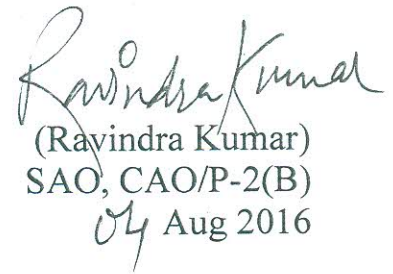 Ravindra Kumar
(Ravindra Kumar)
SAO, CAO/P-2(B)
04 Aug 2016